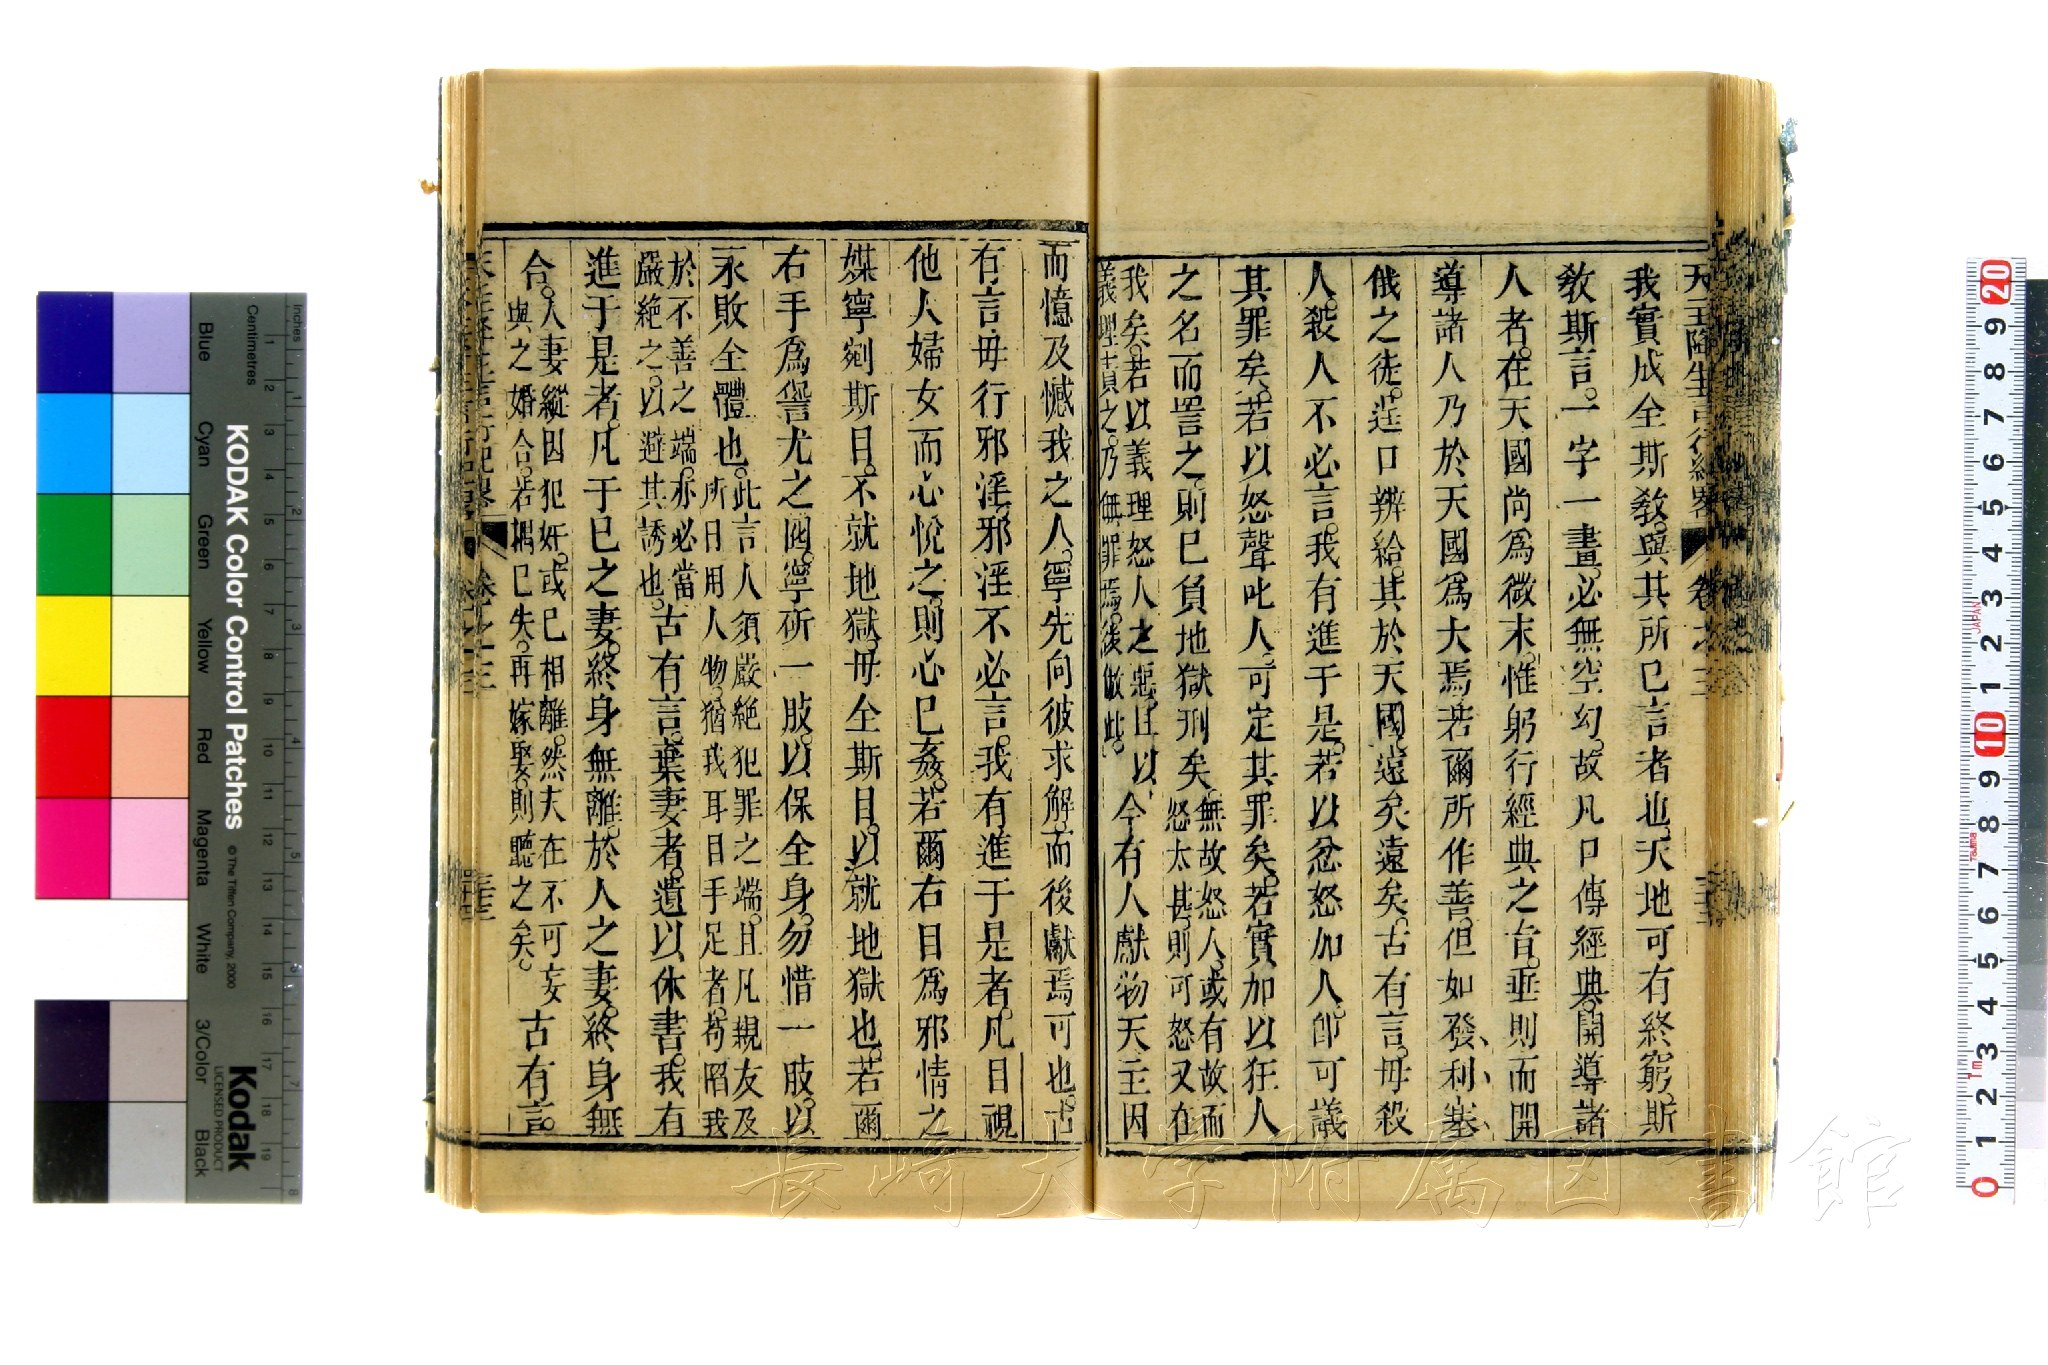 天主降生言行紀畧 卷之三
我實成全斯敎。與其所已言者也。天地可有終窮。斯
敎斯言。一字一畫。必無空幻。故凡口傳經典。開導諸
人者。在天國尚爲微末。惟躬行經典之旨。垂則而開
導諸人乃於天國爲大焉。若爾所作善。但如發利塞
俄之徒。茳口辨給。其於天國。遠矣遠矣。古有言。毋殺
人。殺人不必言。我有進于是。若以忿怒加人。卽可議
其罪矣。若以怒聲叱人。可定其罪矣。若實加以狂人
之名而詈之。則已負地獄刑矣。無故怒人。或有故而
怒太甚。則可怒又在
我矣。若以義理怒人之惡。且以
義理責之。乃無罪焉。後倣此。
今有人獻物天主因
而憶及憾我之人。寧先向彼求解。而後獻焉可也。古
有言毋行邪淫。邪淫不必言。我有進于是者。凡目視
他人婦女而心悅之。則心已姦。若爾右目爲邪情之
媒寧剜斯目。不就地獄。毋全斯目。以就地獄也。若爾
右手爲愆尤之囮。寧斫一肢。以保全身。勿惜一肢。以
永敗全體也。此言人須嚴絕犯罪之端。且凡親友及
所日用人物。猶我耳目手足者。苟陷我
於不善之端。亦必當
嚴絕之。以避其誘也。
古有言。棄妻者。遺以休書。我有
進于是者。凡于已之妻。終身無離。於人之妻。終身無
合。人妻縱因犯奸。或已相離。然夫在不可妄
與之婚合。若偶已失。再嫁娶。則聽之矣。
古有言。
天主降生言行紀畧 卷之三
Inches
Centimetres
Blue
Cyan
Green
Yellow
Red
Magenta
White
3/Color
Black
KODAK Color Control Patches
© The Tiffen Company, 2000
Kodak
LICENSED PRODUCT
長崎大学附属図書館
JAPAN
Tajima
1m